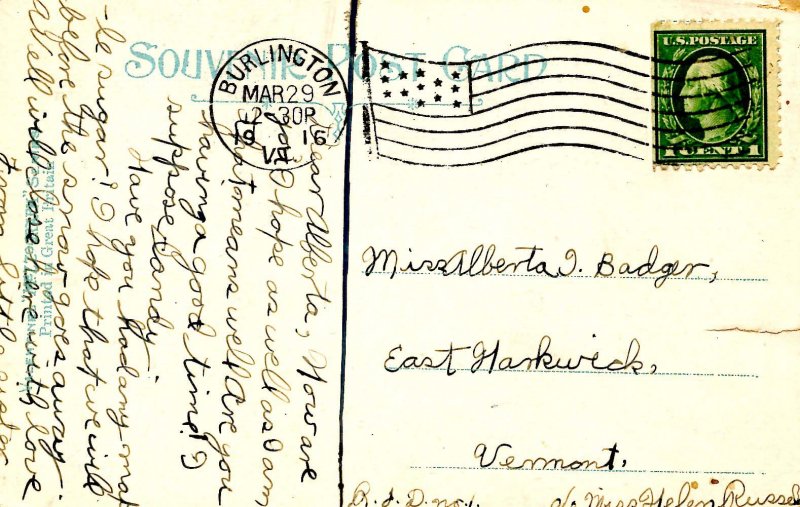 SOUVENIR POST CARD
BURLINGTON
MAR 29
2-30P
1916
VT.
U.S. POSTAGE
1 CENT 1
Miss Alberta I. Badger,
East Harkwick,
Vermont.
R. F. D. no. 1. % Miss Helen Russel
Dear Alberta, How are
you? I hope as well as I am
that means well. Are you
having a good time? I
suppose Sandy.
Have you had any mat
-le sugar? I hope that we will
before the snow goes away.
Well will close here with love
from
Printed in Great Britain